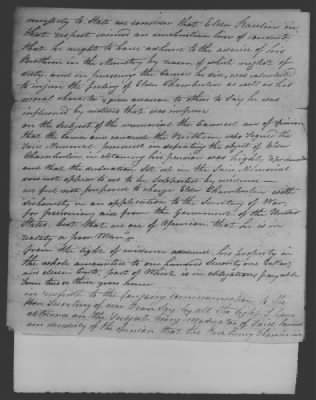 necessity to State we consider that Elder Rawlin in
that respect evinced an unchristian line of conduct
that he ought to have adhered to the advice of his
Brethren in the Ministry by reason of which neglect of
duty, and in pursuing the Course he did, was calculated
to injure the feelings of Elder Chamberlin as well as his
moral character & give occasion to others to say he was
influenced by motives that was impure
on the Subject of the memorial the Council are of opinion
that the Course and conduct the Brethren who Signed the
Said Memorial pursued in defeating the object of Elder
Chamberlin in obtaining his pension was highly
and that the declaration Set up in the Said Memorial
does not appear to us to be Supported by evidence
we feel not prepared to charge Elder Chamberlin with
dishonesty in an application to the Secretary of War,
for pecuniary aid from the Government of the United
States, but that we are of opinion that he is in
reality a poor Man
from the light of evidence adduced, his property in
the whole amounted to one hundred Seventy one Dollars
and eleven Cents, part of Which is in obligations payable
Some two or three years hence
in respect to the foregoing communication to the
Hon Secretary of war I can Say by all the light I have
obtained on the Subject being moderator of Said Council
am decidedly of the opinion that the Revd